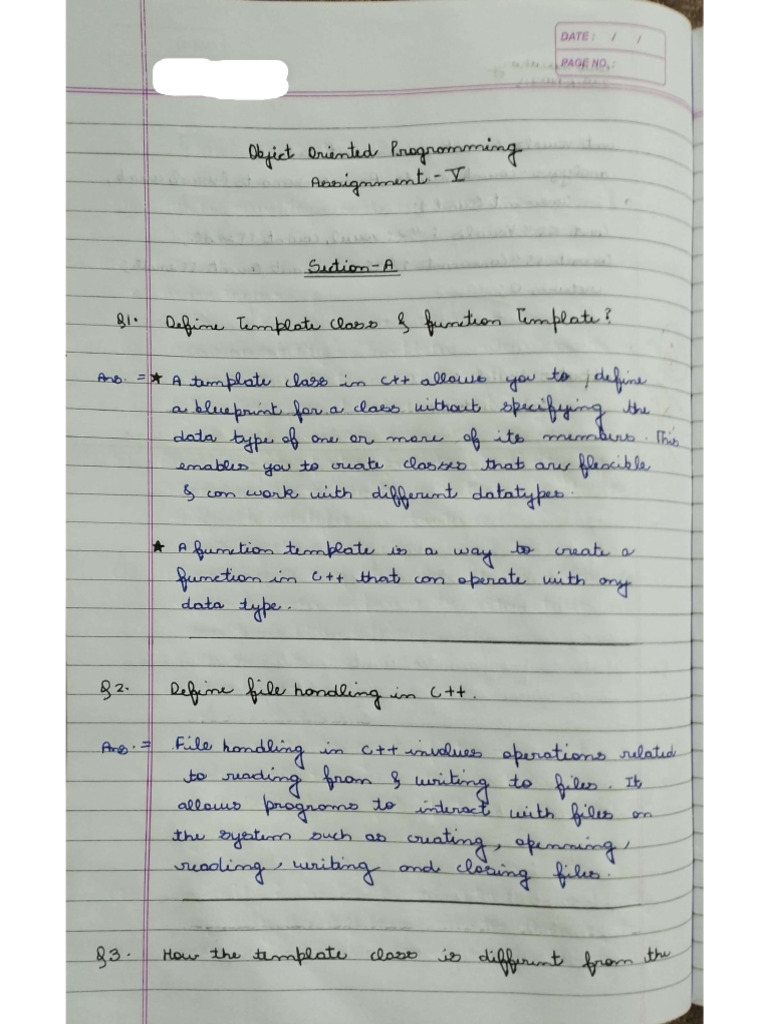 DATE: / /
PAGE NO.:
Object Oriented Programming
Assignment - V
Section-A
Q1. Define Template class & function Template?
Ans. = ★ A template class in C++ allows you to define
a blueprint for a class without specifying the
data type of one or more of its members. This
enables you to create classes that are flexible
& can work with different datatypes.
★ A function template is a way to create a
function in C++ that can operate with any
data type.
Q2. Define file handling in C++.
Ans. = File handling in C++ involves operations related
to reading from & writing to files. It
allows programs to interact with files on
the system such as creating, openning,
reading, writing and closing files.
Q3. How the template class is different from the